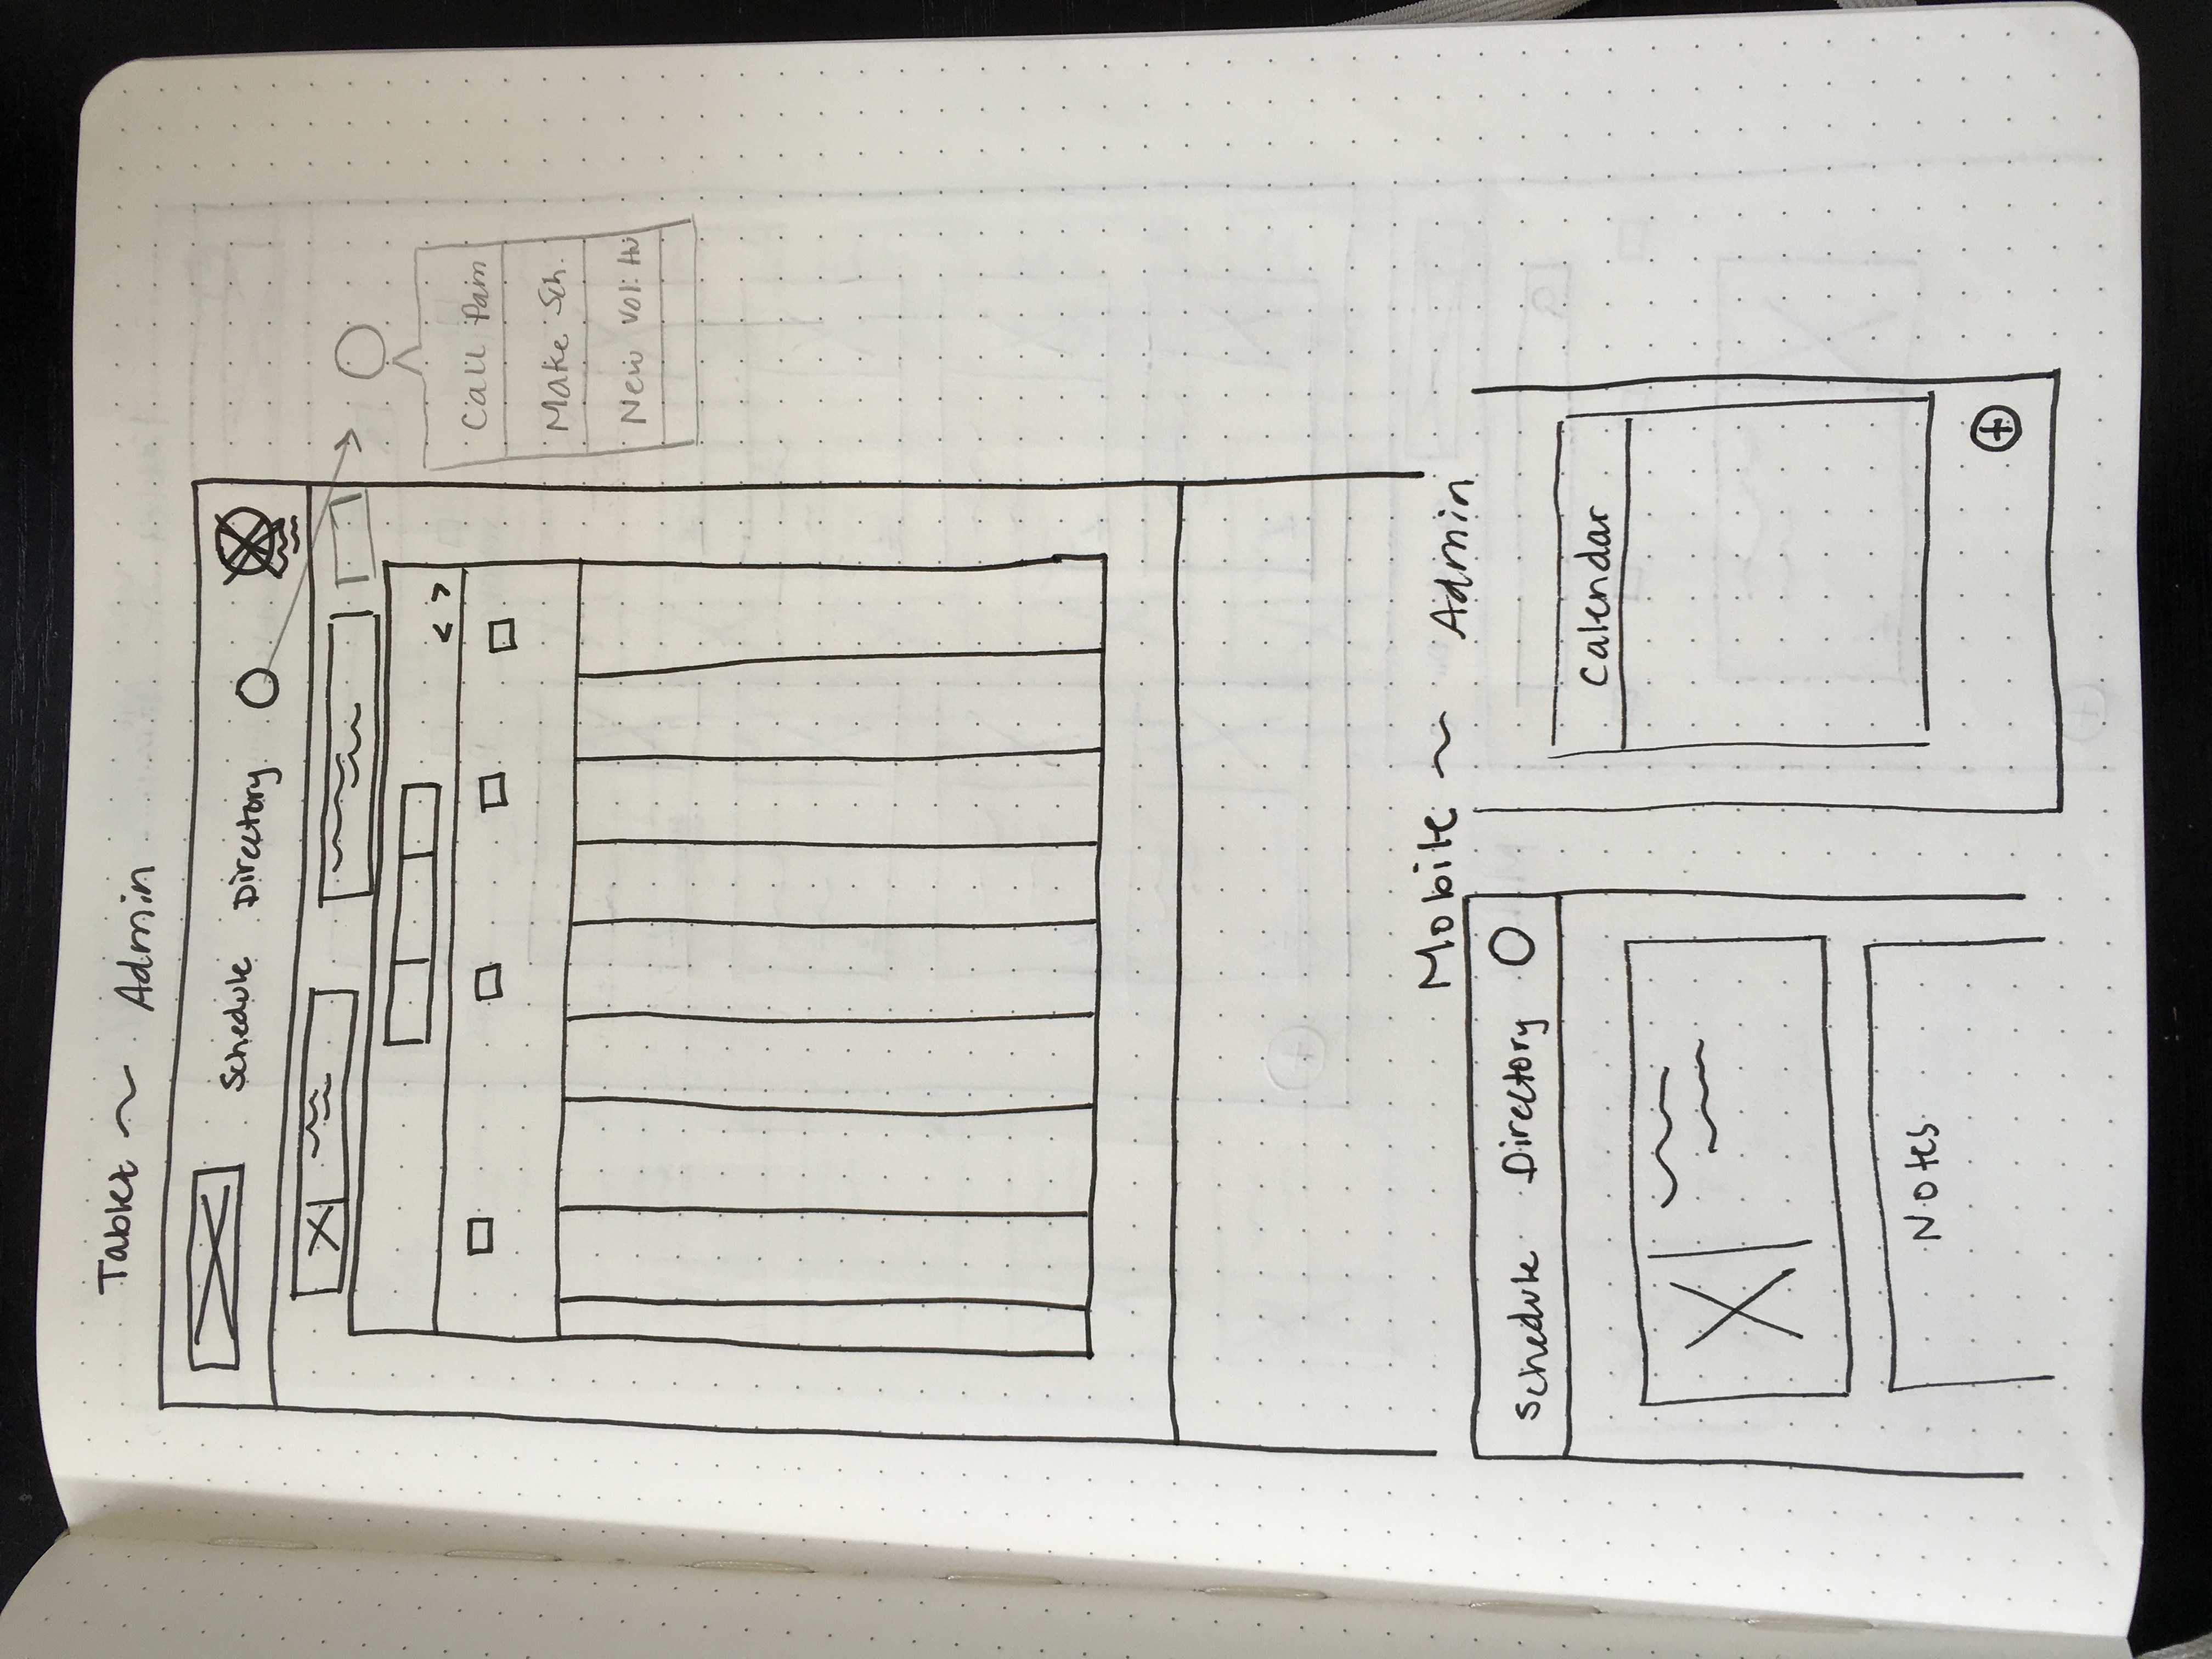 Tablet ~ Admin
Schedule Directory
< >
Call Pam
Make Sch.
New Vol. Hu
Mobile ~ Admin
Schedule Directory
Notes
Calendar
+